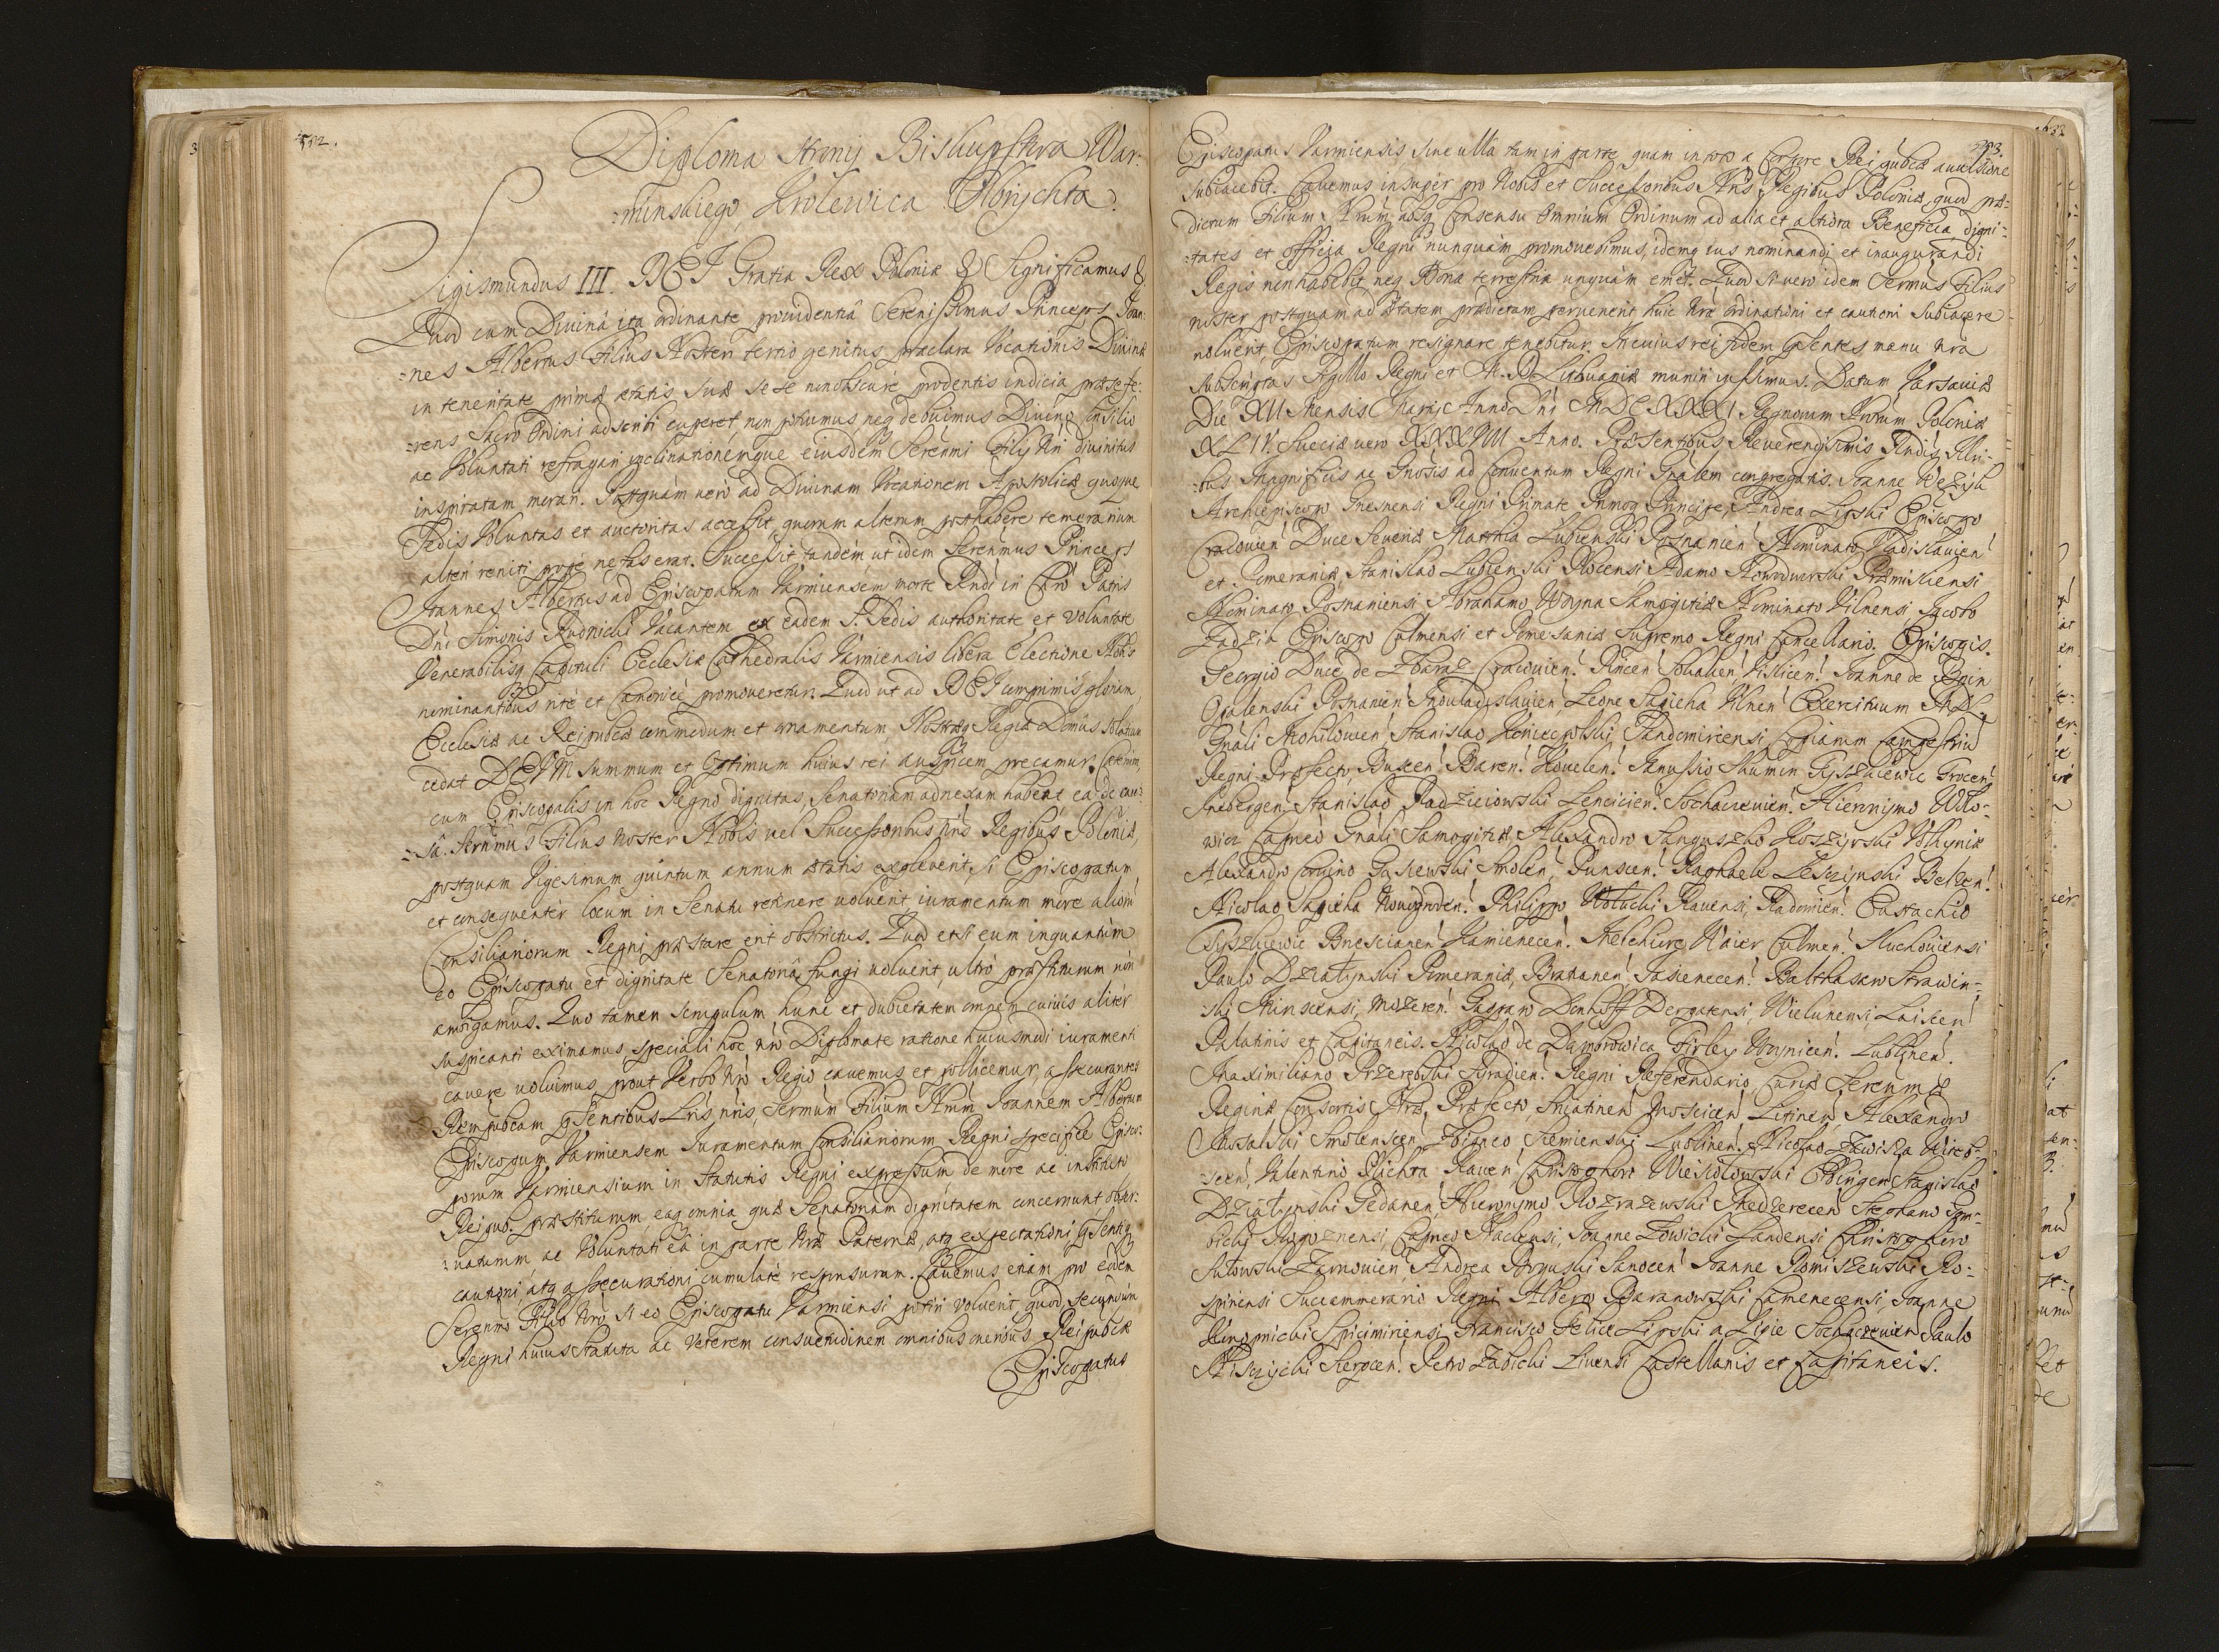 Diploma strony Biskupstwa War:
:minskiego Krolewica Olbrychta.
Sigismundus III. DEI Gratia Rex Poloniæ & Significamus &
Quod cum Divinâ ita ordinante providentiâ Serenissimus Princeps Ioan:
:nes Albertus Filius Noster tertio genitus, præclara Vocationis Divinæ
in teneritate primæ ætatis suæ sese non obscurè prodentis indicia præ se fe:
:rens Sacro Ordini adscribi cuperet, non potuimus neq debuimus Divino Consilio
ac Voluntati refragari inclinationemque eiusdem Serenmi Filij Nri divinitus
inspiratam morari. Postquam verò ad Divinam Vocationem Apostolicæ quoque
Sedis Voluntas et auctoritas accessit, quorum alterum posthabere temerarium
alteri reniti propè nefas erat. Successit tandem, ut idem Serenmus Princeps
Ioannes Albertus ad Episcopatum Varmiensem morte Rndi in Chro Patris
Dni Simonis Rudnicki Vacantem ex eadem S. Sedis authoritate, et voluntate
Venerabilisq Capituli Ecclesiæ Cathedralis Varmiensis libera Electione Nobis
nominantibus ritè et Canonicè promoveretur. Quod ut ad DEI cumprimis gloriam,
Ecclesiæ ac Reipubcæ commodum et ornamentum, Nostræq Regiæ Domûs solatium
cedat DEVM summum et Optimum huius rei auspicem precamur. Cæterum,
cum Episcopalis in hoc Regno dignitas, Senatoriam adnexam habeat ea de cau:
:sâ. Sernmus Filius noster Nobis vel Successoribus nris Regibus Poloniæ,
postquam Vigesimum quintum annum ætatis expleverit, si Episcopatum
et consequenter locum in Senatu retinere voluerit iuramentum more aliorum
Consiliariorum Regni præstare erit obstrictus. Quod etsi eum inquantum
eo Episcopatu et dignitate Senatoriâ fungi voluerit, ultrò præstiturum non
ambigamus. Quo tamen scrupulum hunc et dubietatem omnem cuivis aliter
suspicanti eximamus, speciali hoc nro Diplomate ratione huiusmodi iuramenti
cavere voluimus, prout Verbo Nro Regio cavemus et pollicemur, assecurantes
Rempubcam psentibus Lris nris, Sermum Filium Nrum Ioannem Albertum
Episcopum Varmiensem Iuramentum Consiliariorum Regni specificè Episco:
porum Varmiensium in Statutis Regni expressum, de more ac instituto
Reipub. præstiturum, eaq omnia quæ Senatoriam dignitatem concernunt, obser:
:vaturum, ac Voluntati eâ in parte Nræ Paternæ, atq expectationi psentiq
cautioni, atq assecurationi cumulatè responsurum. Cavemus etiam pro eodem
Serenmo Filio Nro si eo Episcopatu Varmiensi potiri voluerit, quod secundum
Regni huius Statuta ac veterem consuetudinem omnibus oneribus Reipubcæ
Episcopatus
Episcopatus Varmiensis sine ulla tam in parte quam in toto a Corpore Reipubcæ avulsione
Subiacebit. Cavemus insuper pro Nobis et Successoribus Nris Regibus Poloniæ, quod præ:
dictum Filium Nrum, absq Consensu Omnium Ordinum ad alia et altiora Beneficia digni:
:tates et officia Regni nunquam promovebimus, idemq ius nominandi et inaugurandi
Regis non habebit neq Bona terrestria unquam emet. Quod si vero idem Sermus Filius
noster postquam ad ætatem prædictam pervenerit huic Nræ ordinationi et cautioni Subiacere
noluerit, Episcopatum resignare tenebitur. In cuius rei fidem psentes manu nra
subscriptas Sigillo Regni et M. D. Lithuaniæ muniri iussimus. Datum Varsaviæ
Die XII Mensis Martij Anno Dni MDCXXXI Regnorum Nrorum Poloniæ
XLIV. Sueciæ vero XXXVIII Anno. Præsentibus Reverendissimis Rndis Illri:
:bus Magnificis ac Gnosis ad Conventum Regni Gnalem congregatis. Ioanne Wężyk
Archiepiscopo Gnesnensi Regni Primate Primoq Principe, Andrea Lipski Episcopo
Cracovien Duce Severiæ Matthia Lubienski Posnanien Nominato Vladislavien
et Pomeraniæ, Stanislao Lubienski Plocensi Adamo Nowodworski Præmisliensi
Nominato Posnaniensi Abrahamo Woyna Samogitiæ Nominato Vilnensi Iacobo
Zadzik Episcopo Culmensi et Pomesaniæ Supremo Regni Cancellario. Episcopis.
Georgio Duce de Zbaraż Cracovien. Pincen Sokalien Vislicen. Ioanne de Bnin
Opalenski Posnanien Inowladyslavien, Leone Sapieha Vilnen Exercituum MDL.
Gnali Mohilowien Stanislao Koniecpolski Sandomiriensi Copiarum Campestriu
Regni Præfecto, Buscen Baren. Kowelen. Ianussio Skumin Tyszkiewic Trocen
Inebergen. Stanislao Radzieiowski Lencicien. Sochaczevien. Hieronymo Wolo:
wicz Capneo Gnali Samogitiæ, Alexandro Sanguszko Koszyrski Volhyniæ
Alexandro Corvino Gąsiewski Smolen, Punscen. Raphaele Lesczynski Belzen.
Nicolao Sapieha Novogroden. Philippo Wołucki Ravensi, Radomien. Eustachio
Tyszkiewic Brescianen Kamienecen. Melchiore Waier Culmen. Kluchoviensi
Paulo Działynski Pomeraniæ, Bratianen. Jasienecen. Balthasaro Strawin:
:ski Minscensi, Mozeren. Gasparo Donhoff Derpatensi, Wielunensi, Laiscen
Palatinis et Capitaneis. Nicolao de Dambrowica Firley Woynicen. Lublinen.
Maximiliano Przerębski Siradien. Regni Referendario, Curiæ Serenmæ
Reginæ Consortis Nræ, Præfecto, Sniatinen, Moscicen Litinen, Alexandro
Massalski Smolenscen, Zbigneo Siemienski Lublinen. Nicolao Zawisza Witeb:
scen, Valentino Plichta Raven Christophoro Wiesiolowski Elbingen Stanislao
Działynski Gedanen, Hieronymo Rozrazewski Miedzerecen Stephano Gem:
bicki Rogoznensi, Capneo Naclensi, Ioanne Zowicki Landensi Christophoro
Sulowski Zarnovien Andrea Boguski Sanocen Ioanne Romiszewski Ro:
spirensi Succammerario Regni Alberto Baranowski Camenecensi, Ioanne
Rinomicki Spicimiriensi Francisco Felice Lipski a Lipie Sochaczevien Paulo
Niszczycki Sierpcen. Petro Zabicki Livensi Castellanis et Capitaneis.